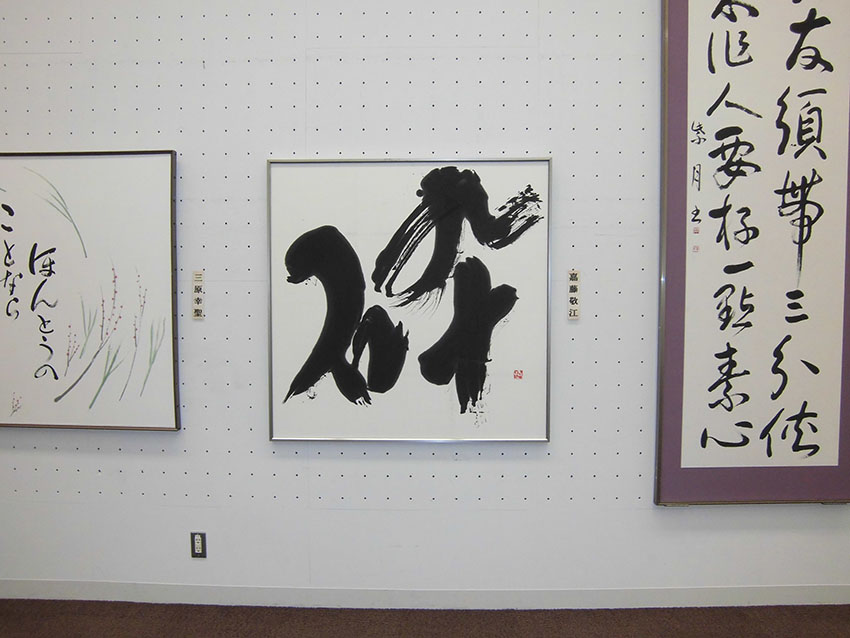 ほんとうの
ことなら
三原幸聖
砕
嘉藤敬江
友須帶三分俠
作人要存一點素心
紫月书